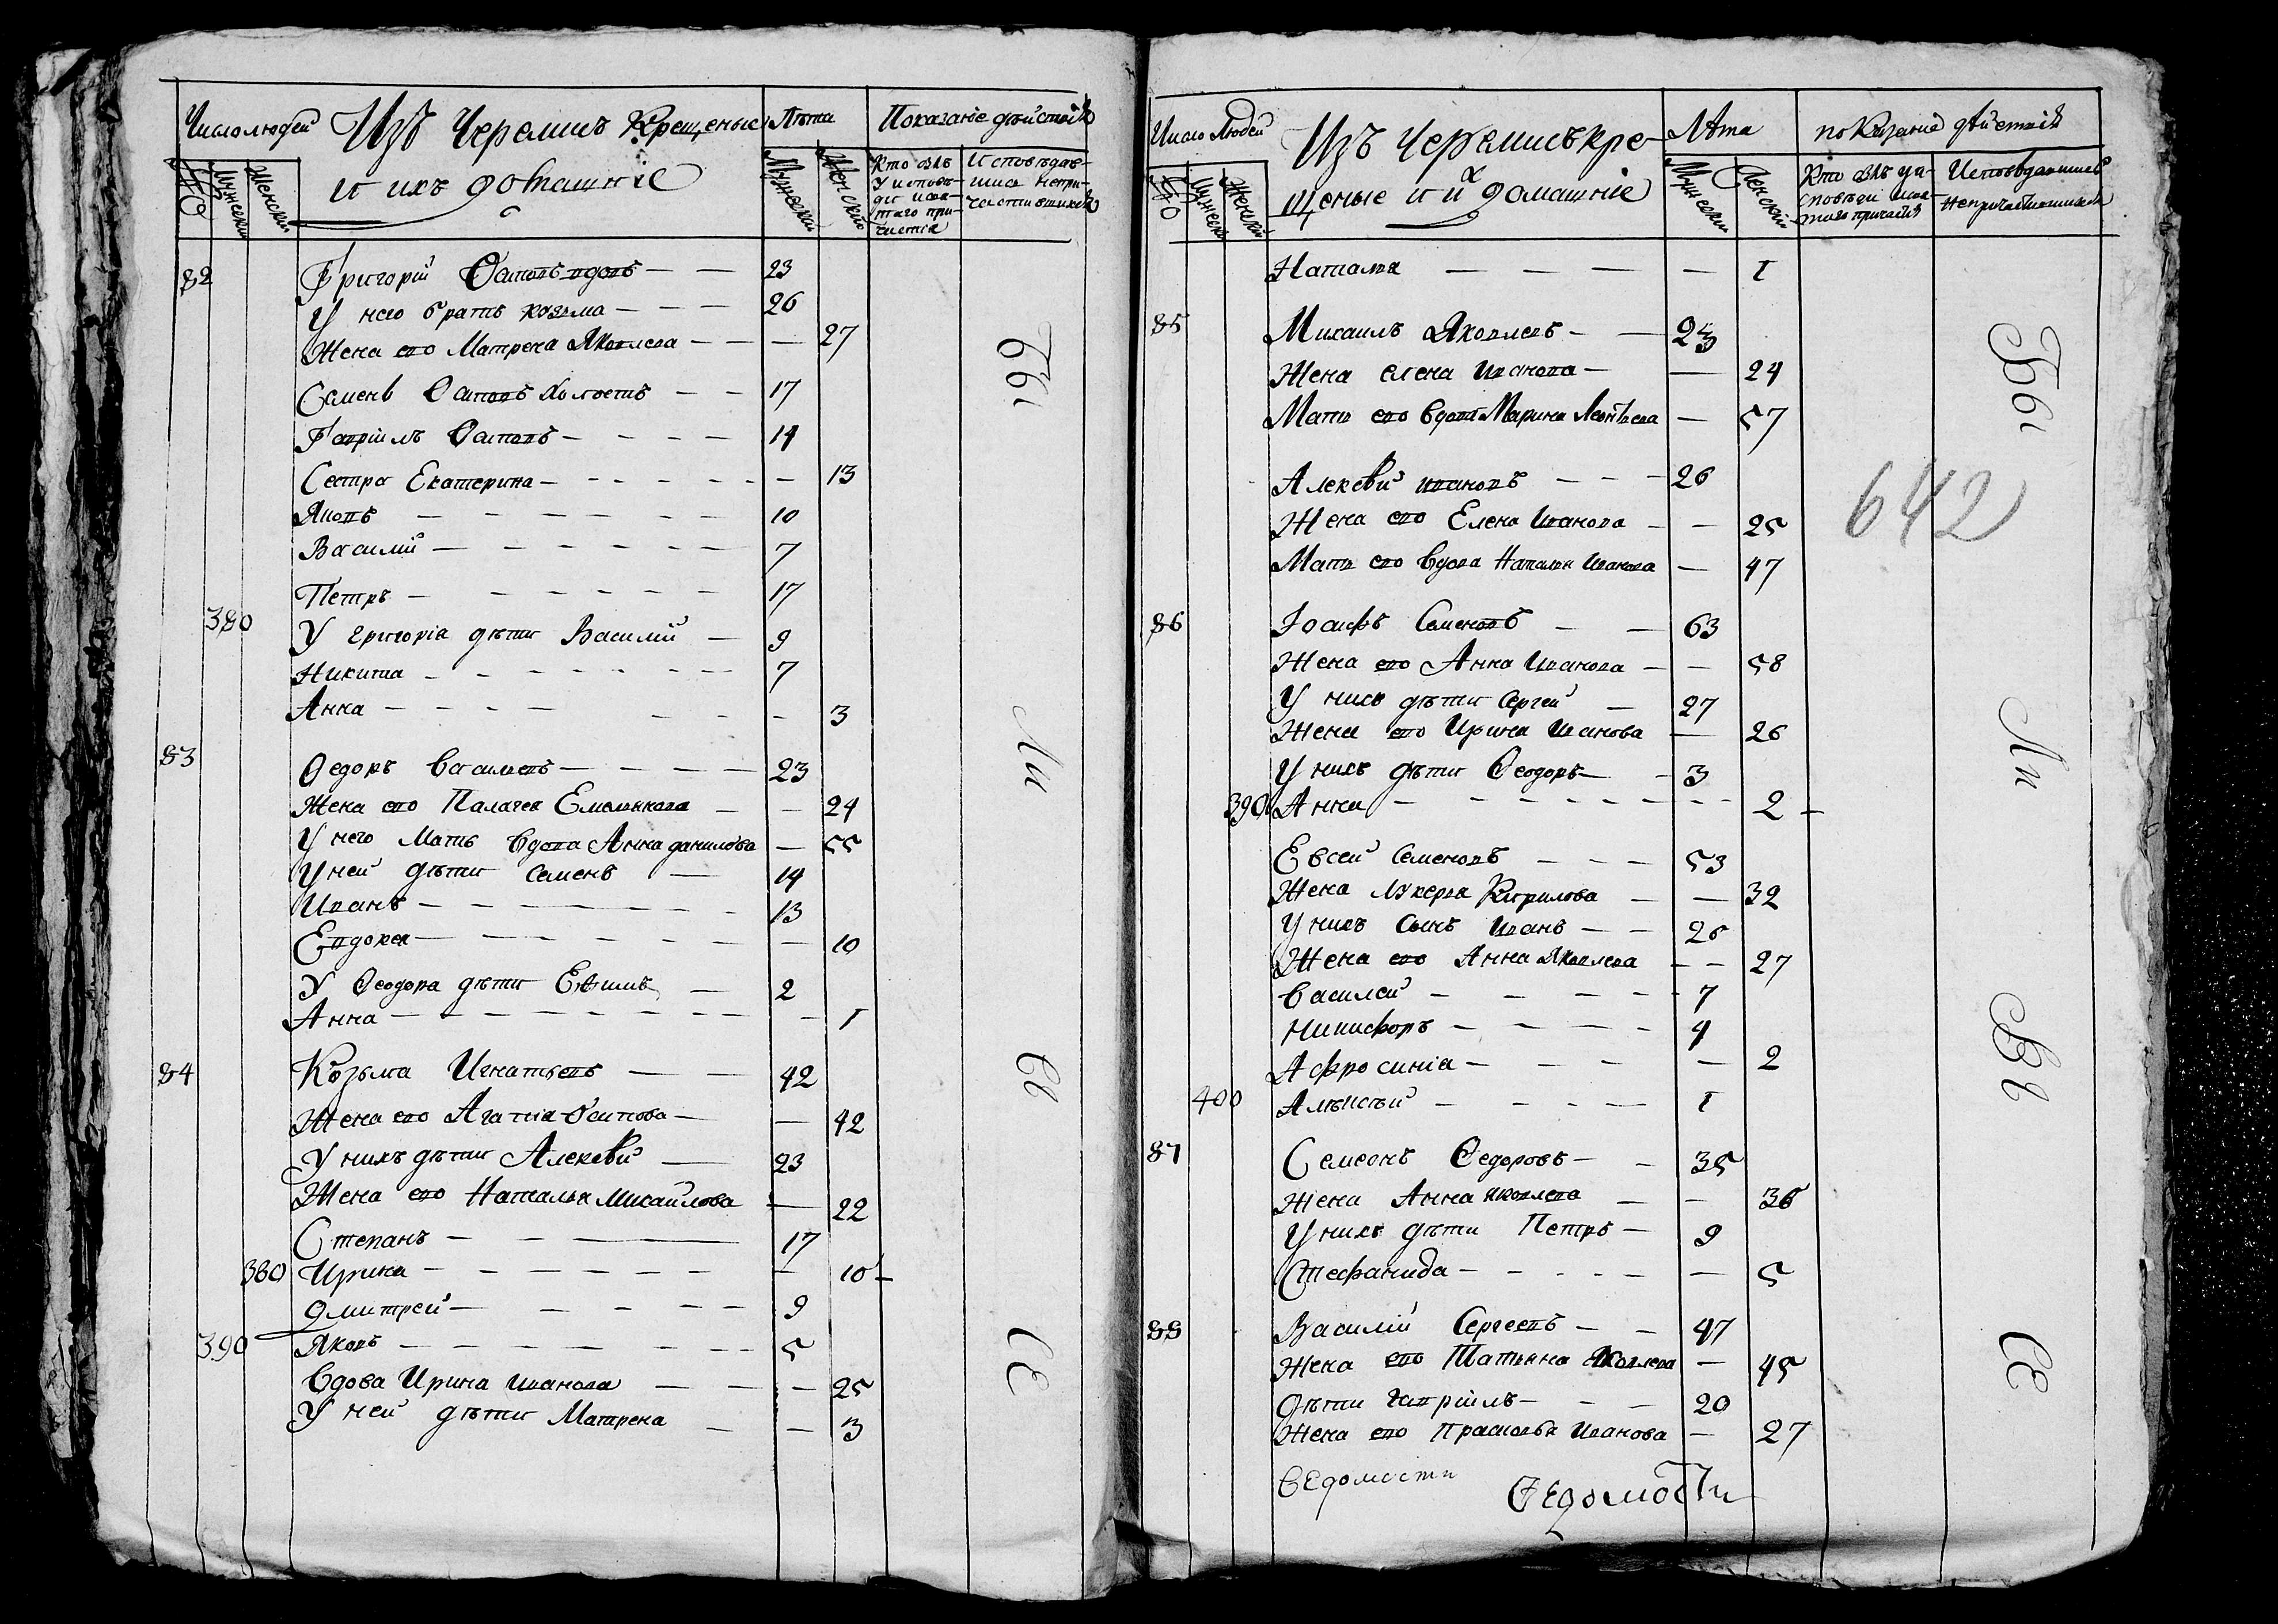 Число людей Изъ Черемисъ Крещеные Лѣта Показаніе дѣйствій
и ихъ домашніе
Мужеска Женска Мужеска Женска
Кто былъ у исповѣди и свѧтаго причастіѧ
Исповѣдавшиса непричастившихсѧ
82 Григорій Осиповъ вдовъ 23
У него братъ козьма 26
Жена его Матрена Яковлева 27
Семенъ Осиповъ Холостъ 17
Гаврилъ Осиповъ 14
Сестра Екатерина 13
Яковъ 10
Василий 7
Петръ 17
380 У григоріа дѣти Василий 9
Никита 7
Анна 3
83 Ѳедоръ василевъ 23
Жена его Палагеа Емельянова 24
У него Мать вдова Анна данилова 55
У ней дѣти семенъ 14
Иванъ 13
Евдокеа 10
У Ѳеодора дѣти Ефимъ 2
Анна 1
84 Козьма Игнатьевъ 42
Жена его Агапіа Осипова 42
У нихъ дѣти Алексѣй 23
Жена его Наталья Михайлова 22
Степанъ 17
380 Ирина 10
дмитрей 9
390 Яковъ 5
вдова Ирина иванова 25
У ней дѣти Матрена 3
бы
Ли
ве
се
Число Людей Изъ Черемисъ кре- Лѣта показание дѣйствій
щеные и их домашніе
Мужеска Женскій Мужески Женскій
Кто былъ у исповѣди и свѧтаго причастіѧ
Исповѣдавшиеся непричастившихсѧ
Наталья 1
85 Михаилъ Яковлевъ 25
Жена елена иванова 24
Мать его вдова Марина Леонтьева 57
Алексѣй ивановъ 26
Жена его Елена иванова 25
Мать его вдова Наталья иванова 47
86 Іосифъ Семеновъ 63
Жена его Анна Иванова 58
У нихъ дѣти Сергей 27
Жена его Ирина Иванова 26
У нихъ дѣти Ѳеодоръ 3
390 Анна 2
Евсей семеновъ 53
Жена Лукерья Кирилова 32
У нихъ сынъ иванъ 26
Жена его Анна Яковлева 27
василей 7
Никифоръ 4
Афросиніа 2
400 Алѣксѣй 1
87 Семеонъ Ѳедоровъ 35
Жена Анна яковлева 36
У нихъ дѣти Петръ 9
Стефанида 5
88 Василій Сергеевъ 47
Жена его Татьяна Яковлева 45
Дѣти гаврилъ 20
Жена его Прасковья Иванова 27
ведомости
Ведомости
бы
642
Ли
ве
се